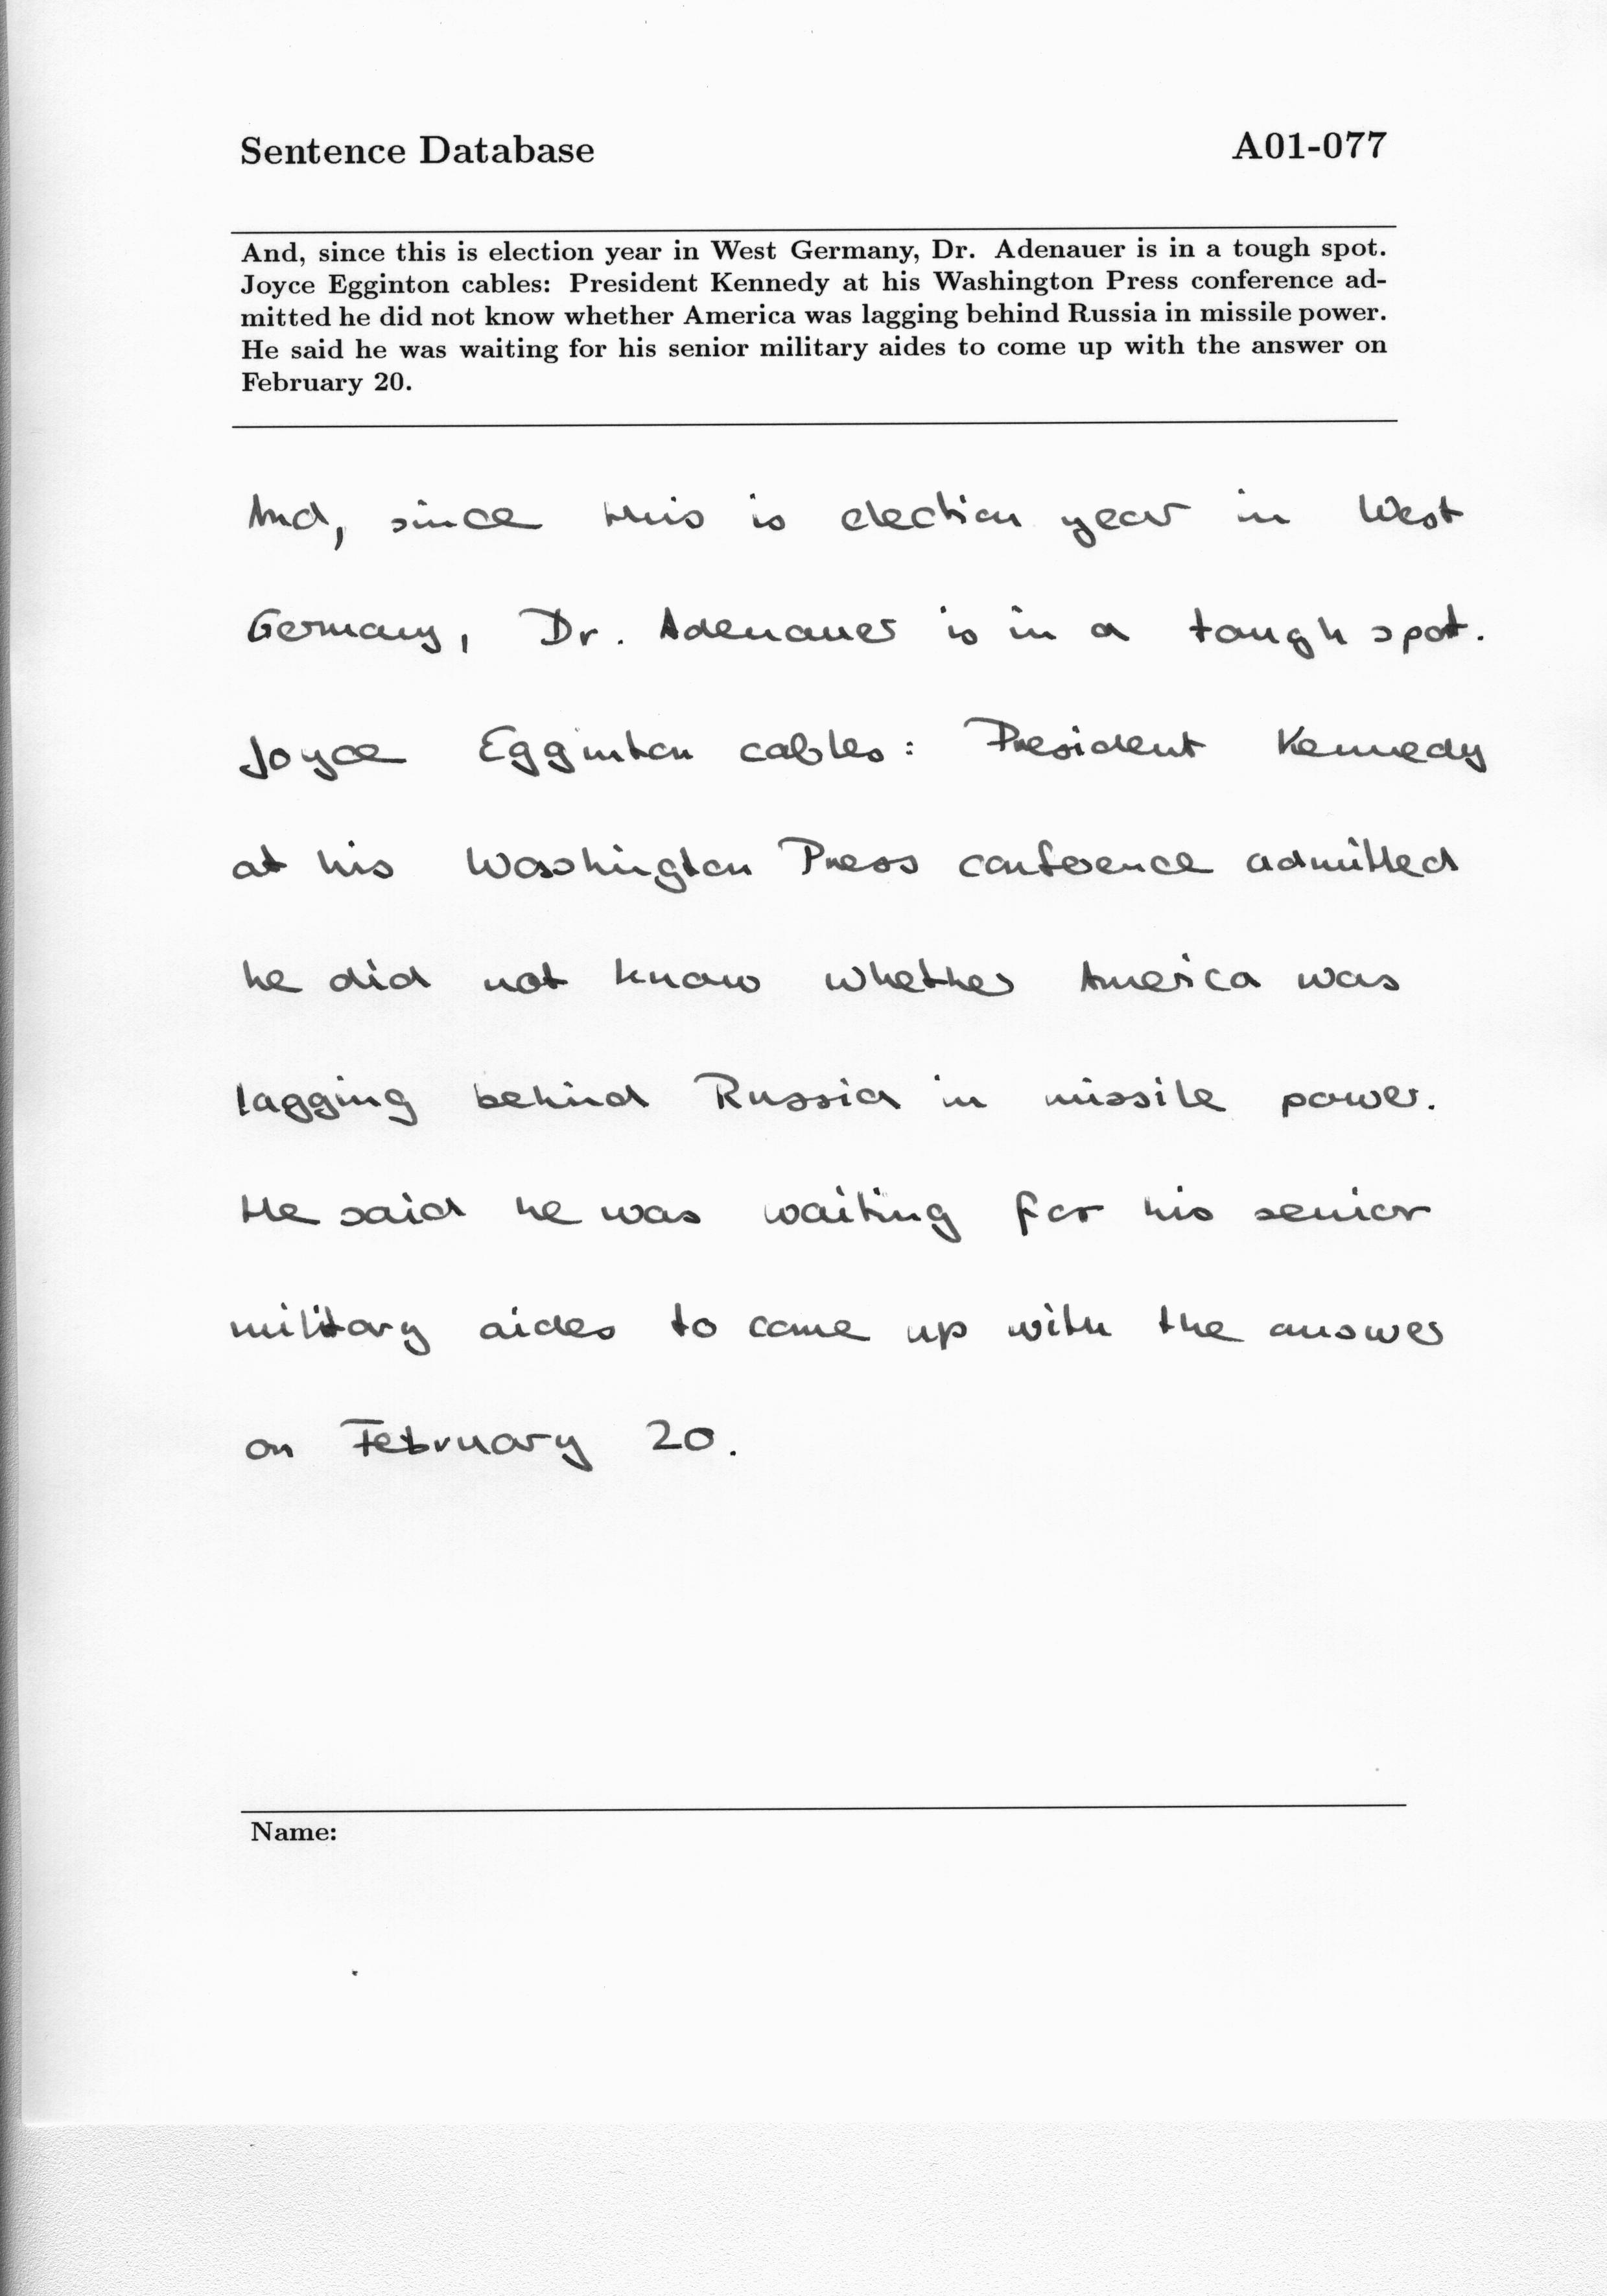 Sentence Database A01-077
And, since this is election year in West Germany, Dr. Adenauer is in a tough spot.
Joyce Egginton cables: President Kennedy at his Washington Press conference ad-
mitted he did not know whether America was lagging behind Russia in missile power.
He said he was waiting for his senior military aides to come up with the answer on
February 20.
And, since this is election year in West
Germany, Dr. Adenauer is in a tough spot.
Joyce Egginton cables: President Kennedy
at his Washington Press conference admitted
he did not know whether America was
lagging behind Russia in missile power.
He said he was waiting for his senior
military aides to come up with the answer
on February 20.
Name: